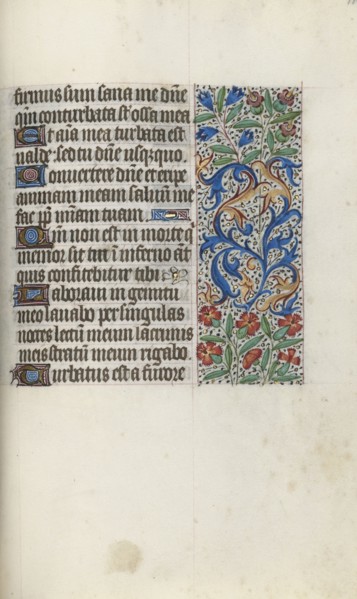 firmus sum sana me dñe
qm̄ conturbata st̄ ossa mea
Et aīa mea turbata est
valde sed tu dñe usq̄zquo.
Convertere dñe et eripe
animam meam salvū me
fac pp̄ m̄iam tuam.
Qm̄ non est in morte q
memor sit tui ī inferno aūt
quis confitebitur tibi
Laboravi in gemitu
meo lavabo per singulas
noctes lectū meum lacrimis
meis stratū meum rigabo.
Turbatus est a furore